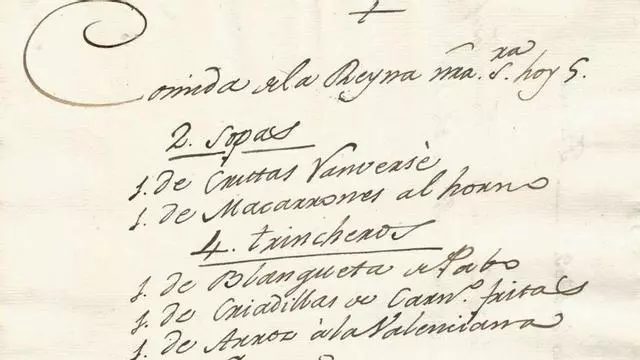 Comida de la Reyna nra. S.ra hoy 5.
2. Sopas
1. de Crutas Vanversè
1. de Macarrones al horno
4. trincheros
1. de Blangueta de Pabo
1. de Criadillas de Carn.o fritas
1. de Arroz à la Valenciana